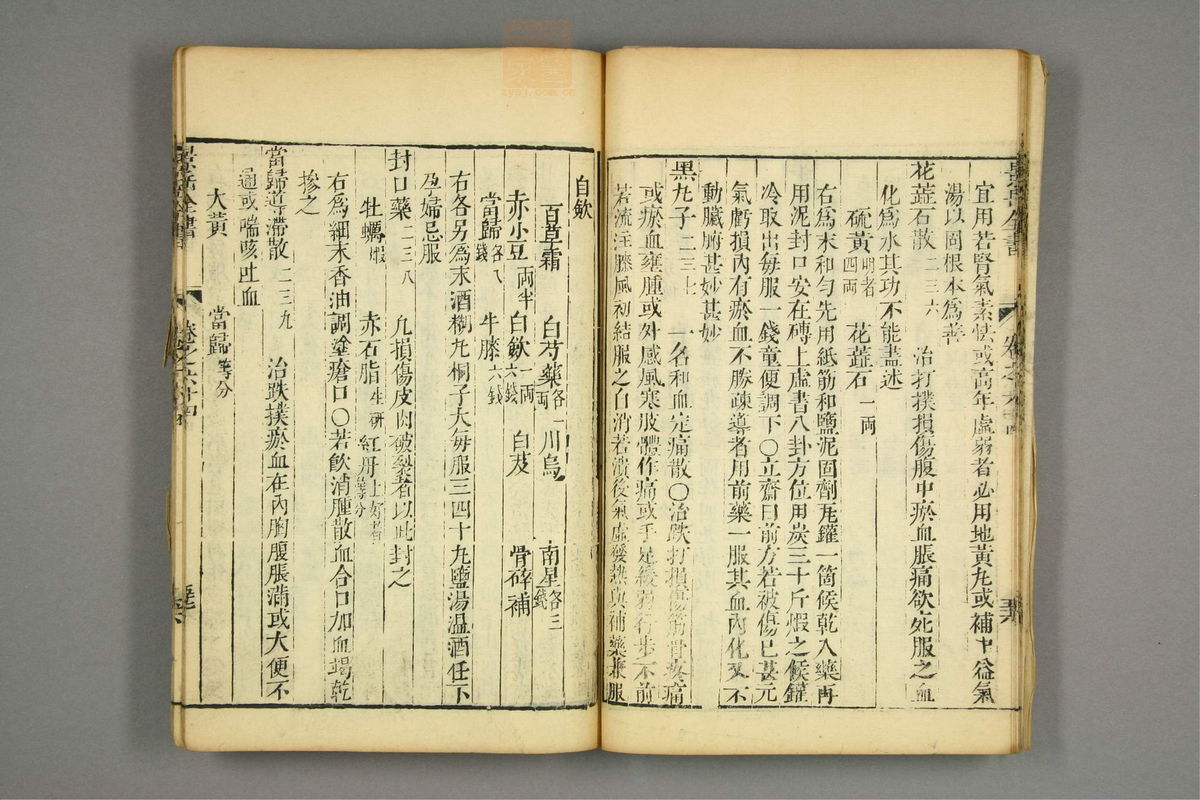 宜用若腎氣素怯或高年虛弱者必用地黃丸或補中益氣
湯以固根本爲善
花蕋石散二三六 治打撲損傷腹中瘀血脹痛欲死服之血
化爲水其功不能盡述
硫黃明者四兩 花蕋石一兩
右爲末和勻先用紙筋和鹽泥固劑瓦鑵一箇候乾入藥再
用泥封口安在磚上虛書八卦方位用炭三十斤煆之候鑵
冷取出每服一錢童便調下〇立齋曰前方若被傷已甚元
氣虧損內有瘀血不勝疎導者用前藥一服其血內化又不
動臟腑甚妙甚妙
黑丸子二三七 一名和血定痛散〇治跌打損傷筋骨疼痛
或瘀血壅腫或外感風寒肢體作痛或手足緩弱行步不前
若流注膝風初結服之自消若潰後氣虛發熱與補藥兼服
自歛
百草霜 白芍藥各一兩 川烏 南星各三錢
赤小豆兩半 白歛一兩六錢 白芨 骨碎補
當歸各八錢 牛膝六錢
右各另爲末酒糊丸桐子大每服三四十丸鹽湯温酒任下
孕婦忌服
封口藥二三八 凡損傷皮肉破裂者以此封之
牡蠣煆 赤石脂生研 紅丹上好者等分
右爲細末香油調塗瘡口〇若飲消腫散血合口加血竭乾
摻之
當歸導滯散二三九 治跌撲瘀血在內胸腹脹滿或大便不
通或喘咳吐血
大黃 當歸等分